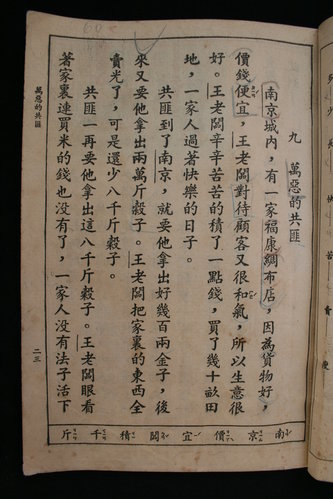 九 萬惡的共匪
南京城內，有一家福康綢布店，因為貨物好，
價錢便宜，王老闆對待顧客又很和氣，所以生意很
好。王老闆辛辛苦苦的積了一點錢，買了幾十畝田
地，一家人過著快樂的日子。
共匪到了南京，就要他拿出好幾百兩金子，後
來又要他拿出兩萬斤穀子。王老闆把家裏的東西全
賣光了，可是還少八千斤穀子。
共匪一再要他拿出這八千斤穀子。王老闆眼看
著家裏連買米的錢也沒有了，一家人沒有法子活下
萬惡的共匪
二三
南 京 價 宜 闆 積 千 斤